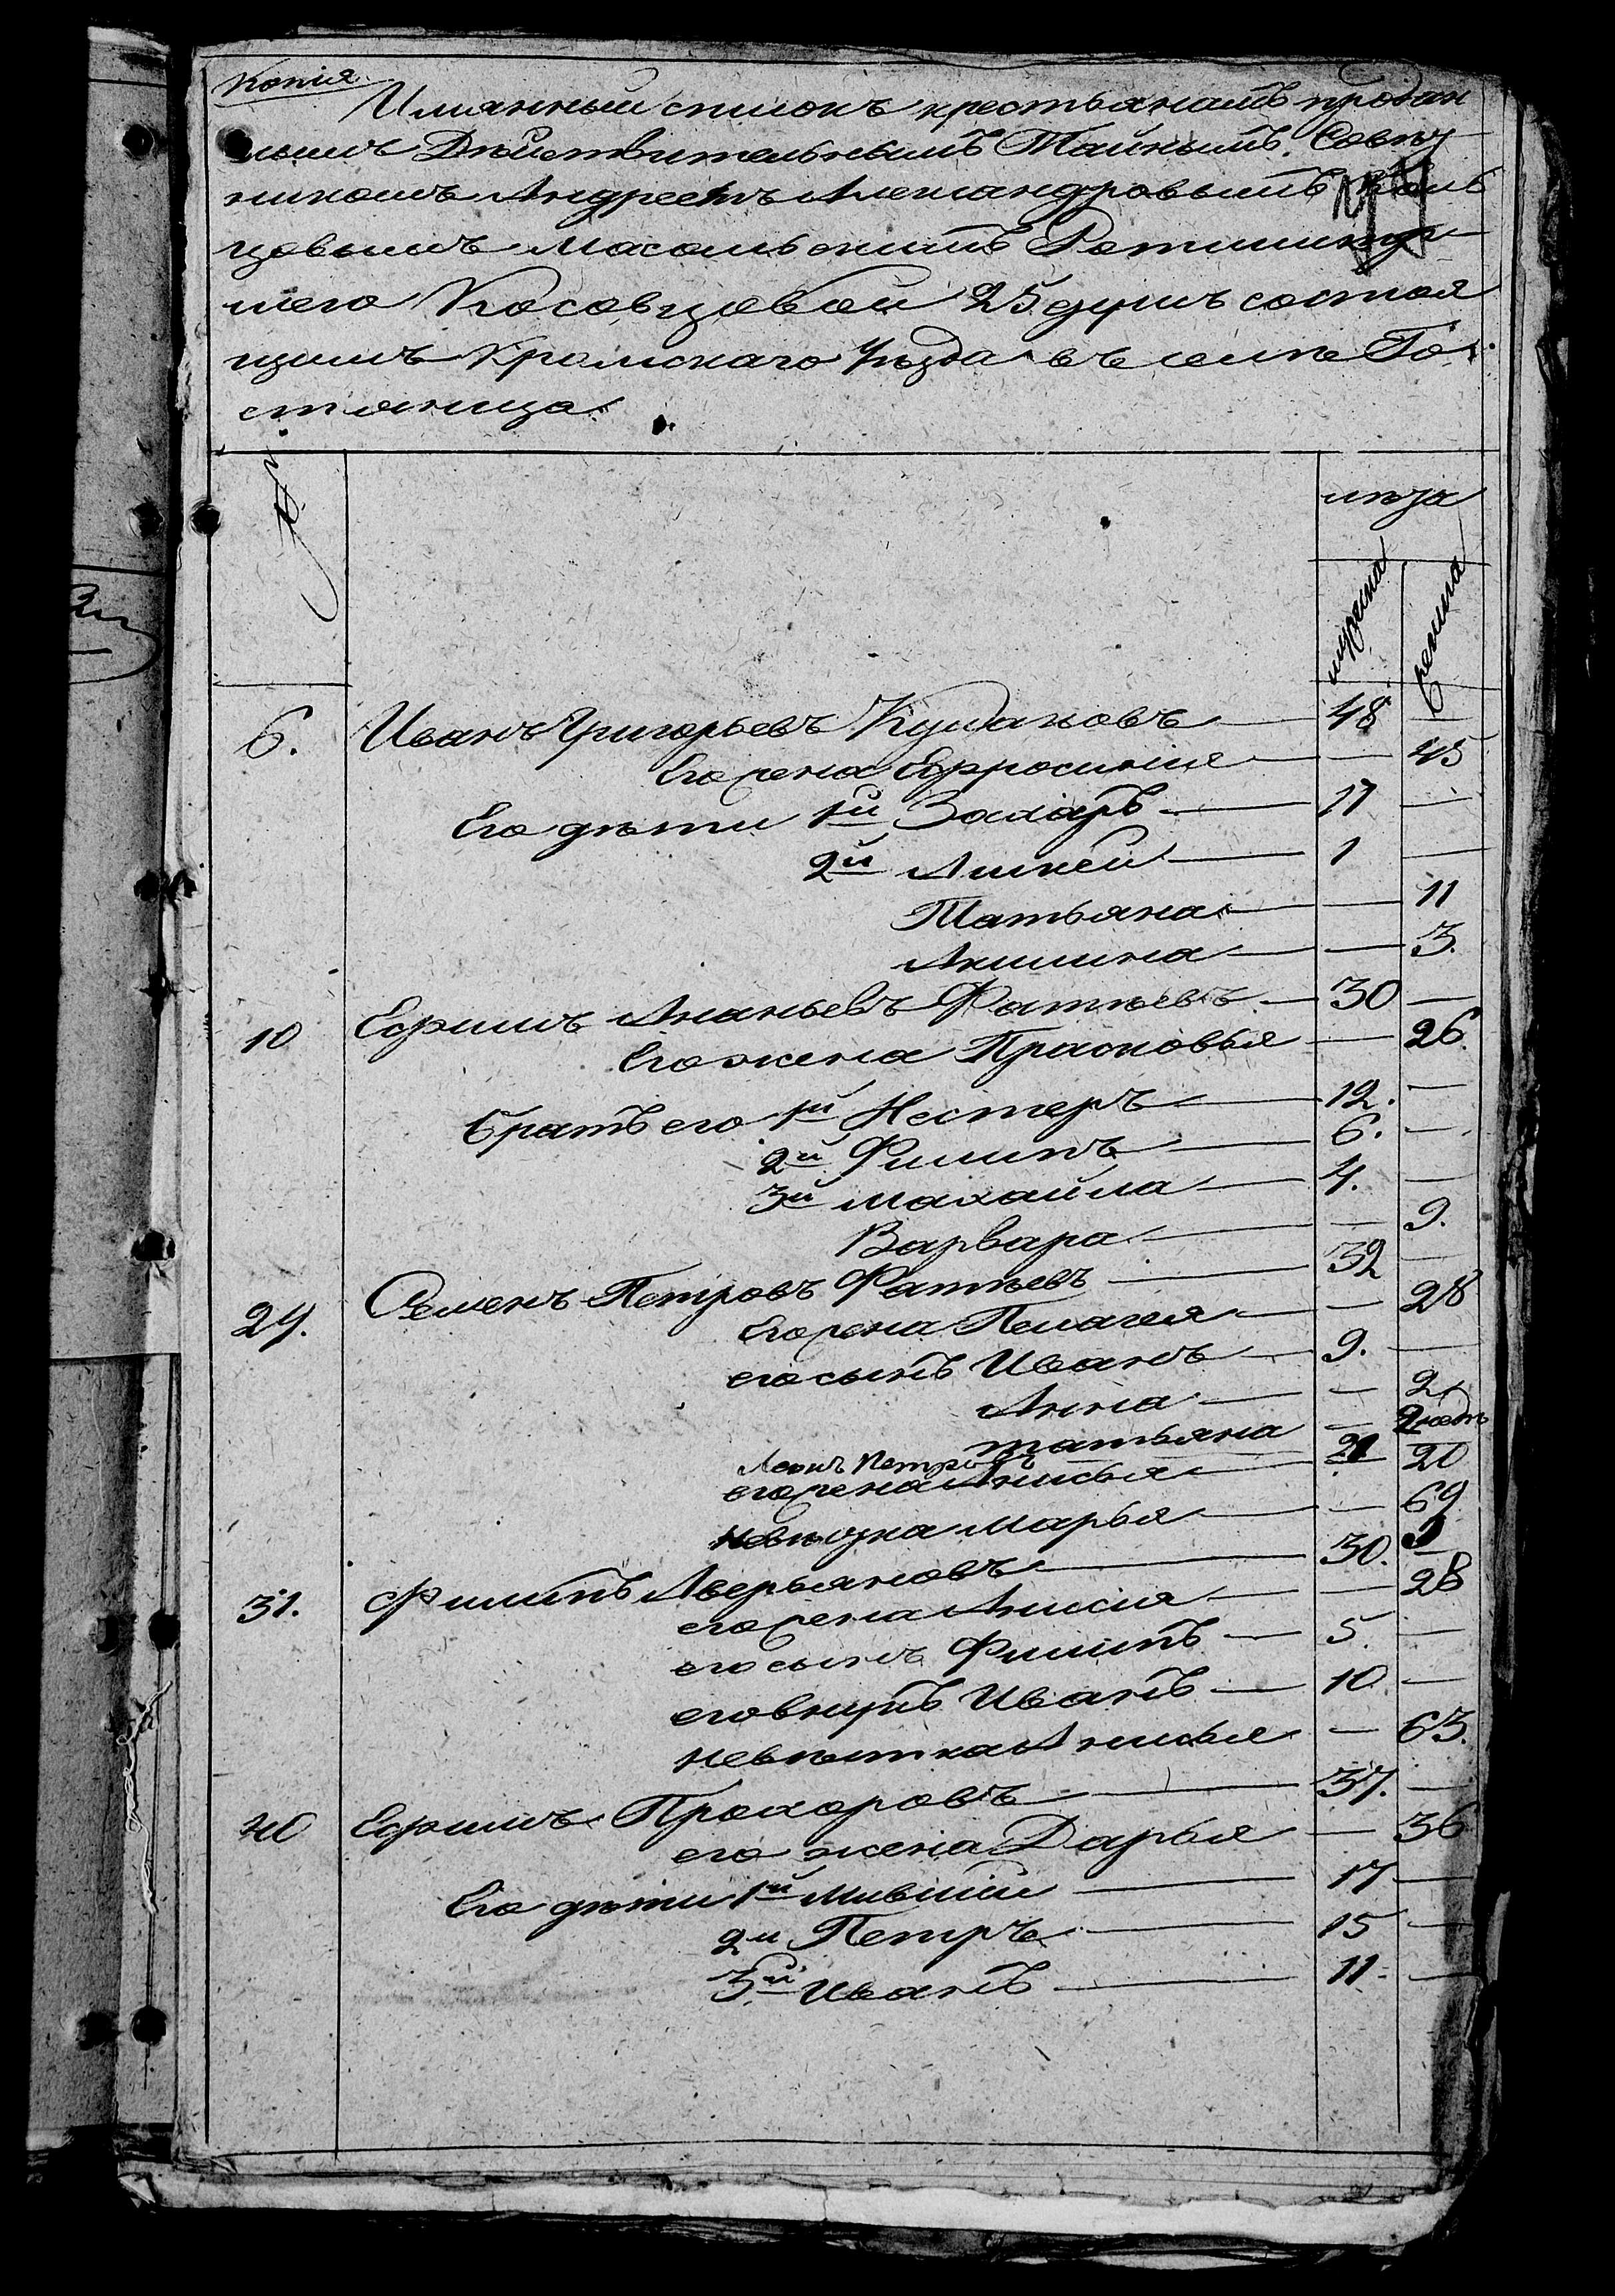 Копія
Имянный списокъ крестьянамъ продан
нымъ Дѣйствительнымъ Тайнымъ Совѣт
никомъ Андреемъ Александровымъ
цовымъ Масальскимъ Ротмистр
шею Косовцовой 25 душъ состоя
щимъ Кромскаго Уѣзда въ селѣ Го
стяница
лѣта
мужеска женска
6. Иванъ Григорьевъ Кулаковъ — 48 —
Его жена Ефросинія — — 45
Его дѣти 1й Захаръ — 17 —
2й Аикей — 1 —
Татьяна — — 11
Акилина — — 3.
10 Ефимъ Ананьевъ Фатѣевъ — 30 —
Его жена Прасковья — — 26.
братъ его 1й Нестеръ — 12. —
2й Филипъ — 6. —
3й Махайла — 4. —
Варвара — — 9.
Семенъ Петровъ Фатѣевъ — 32 —
24. Его жена Пелагея — — 28
его сынъ Иванъ — 9. —
Анна — — 2
татьяна —
Петровъ 21
его жена Анисья — 20
Марья — — 69
31. Филипъ Аверьяновъ — 30. —
его жена Анисия — — 28
его сынъ Филипъ — 5. —
его внукъ Иванъ — 10. —
невѣстка Анисья — 63.
40 Ефимъ Прохоровъ — 37. —
его жена Дарья — 36
Его дѣти 1й — 17 —
2й Петръ — 15 —
3й Иванъ — 11. —